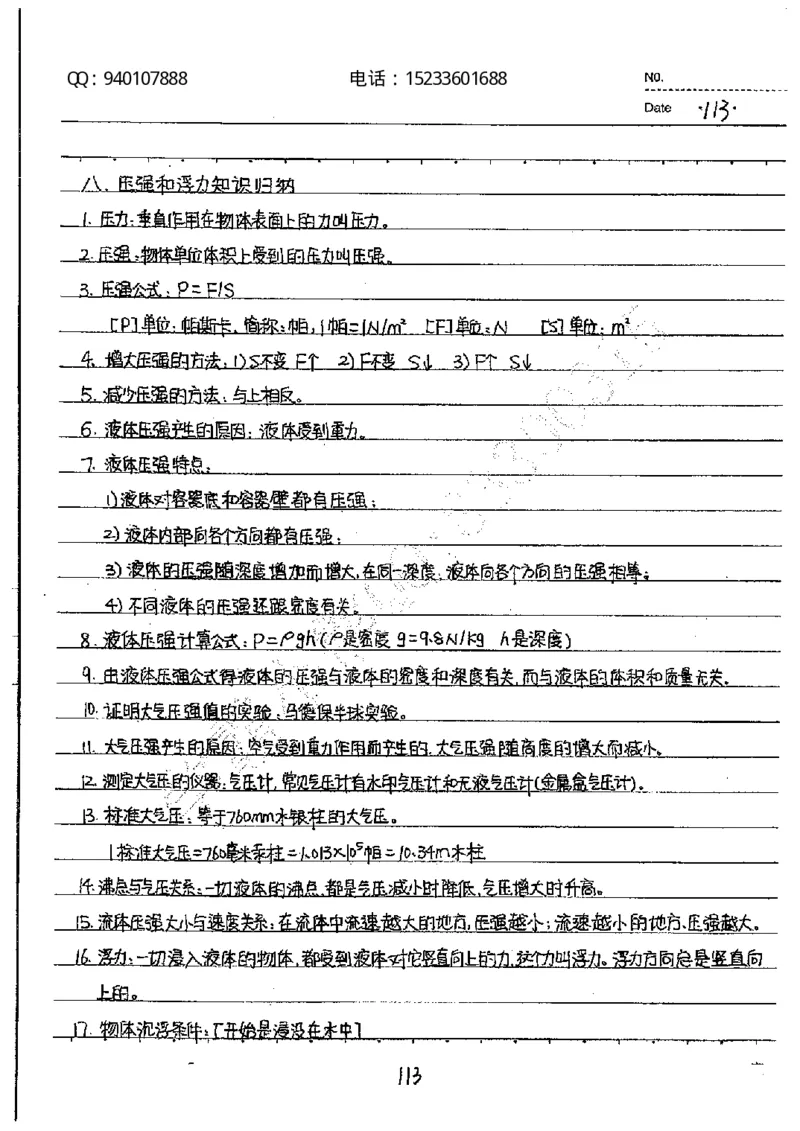 QQ：940107888 电话：15233601688 No.
Date ·113·
八、压强和浮力知识归纳
1. 压力：垂直作用在物体表面上的力叫压力。
2. 压强：物体单位体积上受到的压力叫压强。
3. 压强公式：P=F/S
[P]单位：帕斯卡，简称：帕，1帕=1N/m² [F]单位：N [S]单位：m²
4. 增大压强的方法：1)S不变 F↑ 2)F不变 S↓ 3)F↑ S↓
5. 减少压强的方法：与上相反。
6. 液体压强产生的原因：液体受到重力。
7. 液体压强特点：
1)液体对容器底和容器壁都有压强；
2)液体内部向各个方向都有压强；
3)液体的压强随深度增加而增大，在同一深度，液体向各个方向的压强相等；
4)不同液体的压强还跟密度有关。
8. 液体压强计算公式：P=ρgh(ρ是密度 g=9.8N/kg h是深度)
9. 由液体压强公式得液体的压强与液体的密度和深度有关，而与液体的体积和质量无关。
10. 证明大气压强值的实验：马德保半球实验。
11. 大气压强产生的原因：空气受到重力作用而产生的，大气压强随高度的增大而减小。
12. 测定大气压的仪器：气压计，常见气压计有水印气压计和无液气压计(金属盒气压计)。
13. 标准大气压：等于760mm水银柱的大气压。
1标准大气压=760毫米汞柱=1.013×10⁵帕=10.34m水柱
14. 沸点与气压关系：一切液体的沸点，都是气压减小时降低，气压增大时升高。
15. 流体压强大小与速度关系：在流体中流速越大的地方，压强越小；流速越小的地方、压强越大。
16. 浮力：一切浸入液体的物体，都受到液体对它竖直向上的力，这个力叫浮力。浮力方向总是竖直向
上的。
17. 物体沉浮条件：[开始是浸没在水中]
113